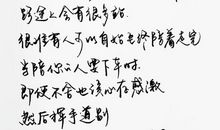 路途上会有很多站
很难有人可以自始至终陪着走完
当陪你的人要下车时
即使不舍也该心存感激
然后挥手道别